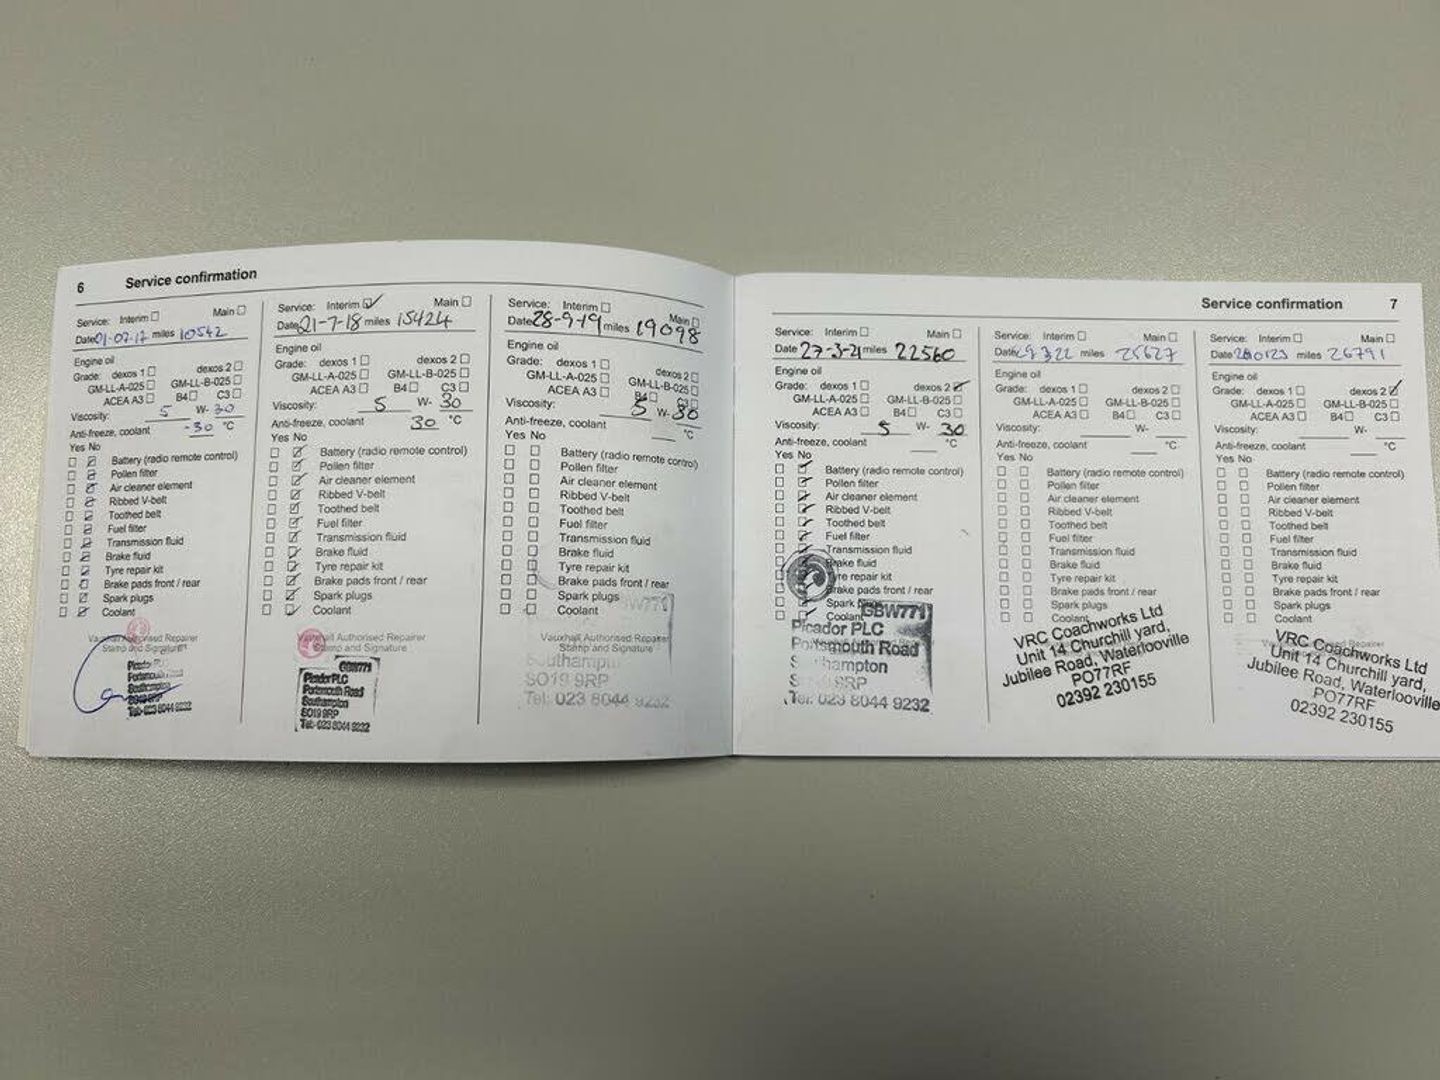 6 Service confirmation
Service: Interim Main
Date 01-07-17 miles 10542
Engine oil
Grade: dexos 1 dexos 2
GM-LL-A-025 GM-LL-B-025
ACEA A3 B4 C3
Viscosity: 5 W- 30
Anti-freeze, coolant -30 °C
Yes No
Battery (radio remote control)
Pollen filter
Air cleaner element
Ribbed V-belt
Toothed belt
Fuel filter
Transmission fluid
Brake fluid
Tyre repair kit
Brake pads front / rear
Spark plugs
Coolant
Vauxhall Authorised Repairer
Stamp and Signature
Picador PLC
Portsmouth Road
Southampton
SO19 9RP
Tel: 023 8044 9232
Service: Interim Main
Date 21-7-18 miles 15424
Engine oil
Grade: dexos 1 dexos 2
GM-LL-A-025 GM-LL-B-025
ACEA A3 B4 C3
Viscosity: 5 W- 30
Anti-freeze, coolant 30 °C
Yes No
Battery (radio remote control)
Pollen filter
Air cleaner element
Ribbed V-belt
Toothed belt
Fuel filter
Transmission fluid
Brake fluid
Tyre repair kit
Brake pads front / rear
Spark plugs
Coolant
Vauxhall Authorised Repairer
Stamp and Signature
GBW771
Picador PLC
Portsmouth Road
Southampton
SO19 9RP
Tel: 023 8044 9232
Service: Interim Main
Date 28-9-19 miles 19098
Engine oil
Grade: dexos 1 dexos 2
GM-LL-A-025 GM-LL-B-025
ACEA A3 B4 C3
Viscosity: 5 W- 30
Anti-freeze, coolant °C
Yes No
Battery (radio remote control)
Pollen filter
Air cleaner element
Ribbed V-belt
Toothed belt
Fuel filter
Transmission fluid
Brake fluid
Tyre repair kit
Brake pads front / rear
Spark plugs
Coolant
Vauxhall Authorised Repairer
Stamp and Signature
SO19 9RP
Tel: 023 8044 9232
Service confirmation 7
Service: Interim Main
Date 27-3-21 miles 22560
Engine oil
Grade: dexos 1 dexos 2
GM-LL-A-025 GM-LL-B-025
ACEA A3 B4 C3
Viscosity: 5 W- 30
Anti-freeze, coolant °C
Yes No
Battery (radio remote control)
Pollen filter
Air cleaner element
Ribbed V-belt
Toothed belt
Fuel filter
Transmission fluid
Brake fluid
Tyre repair kit
Brake pads front / rear
Spark
Coolant
GBW771
Picador PLC
Portsmouth Road
Southampton
9RP
Tel: 023 8044 9232
Service: Interim Main
Date miles
Engine oil
Grade: dexos 1 dexos 2
GM-LL-A-025 GM-LL-B-025
ACEA A3 B4 C3
Viscosity: W-
Anti-freeze, coolant °C
Yes No
Battery (radio remote control)
Pollen filter
Air cleaner element
Ribbed V-belt
Toothed belt
Fuel filter
Transmission fluid
Brake fluid
Tyre repair kit
Brake pads front / rear
Spark plugs
Coolant
VRC Coachworks Ltd
Unit 14 Churchill yard,
Jubilee Road, Waterlooville
PO77RF
02392 230155
Service: Interim Main
Date miles 26791
Engine oil
Grade: dexos 1 dexos 2
GM-LL-A-025 GM-LL-B-025
ACEA A3 B4 C3
Viscosity: W-
Anti-freeze, coolant °C
Yes No
Battery (radio remote control)
Pollen filter
Air cleaner element
Ribbed V-belt
Toothed belt
Fuel filter
Transmission fluid
Brake fluid
Tyre repair kit
Brake pads front / rear
Spark plugs
Coolant
VRC Coachworks Ltd
Unit 14 Churchill yard,
Jubilee Road, Waterlooville
PO77RF
02392 230155